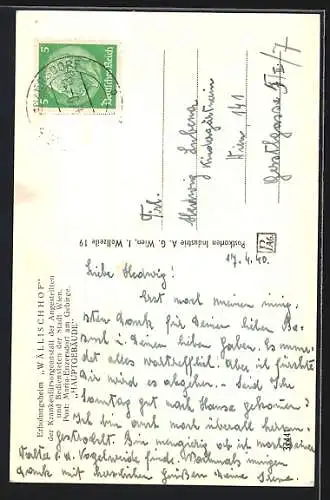 5 5
Deutsches Reich
Frl.
Hedwig
Kindergärtnerin
Wien 141
Postkarten Industrie A. G. Wien, I. Wollzeile 19
Erholungsheim „WÄLLISCHHOF"
der Krankenfürsorgeanstalt der Angestellten
und Bediensteten der Stadt Wien.
Post: Maria-Enzersdorf am Gebirge.
"HAUPTGEBÄUDE"
17.4.40.
Liebe Hedwig!
Erst noch meinen innig-
sten Dank für Deinen lieben Be-
such u. Deinen lieben Gaben. Es mun-
det alles vortrefflich. Aber ich fürchte
Dir wird es abgehen. Seid Ihr
Sonntag gut nach Hause gekommen?
Ich bin auch noch überall herum-
Bin neugierig ob ich noch einen
Walter v. d. Vogelweide finde. Nochmals innigen
Dank mit herzlichen Grüßen Deine